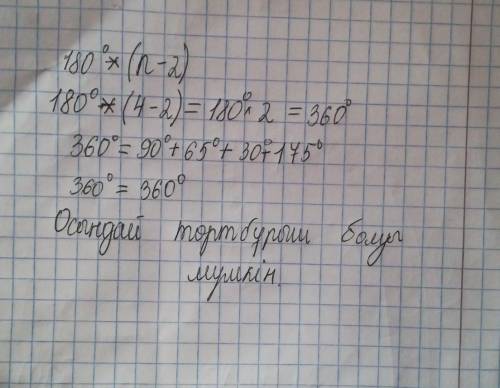 180° * (n-2)
180° * (4-2) = 180° · 2 = 360°
360° = 90° + 65° + 30° + 175°
360° = 360°
Осындай тортбурыш болуы
мумкін.